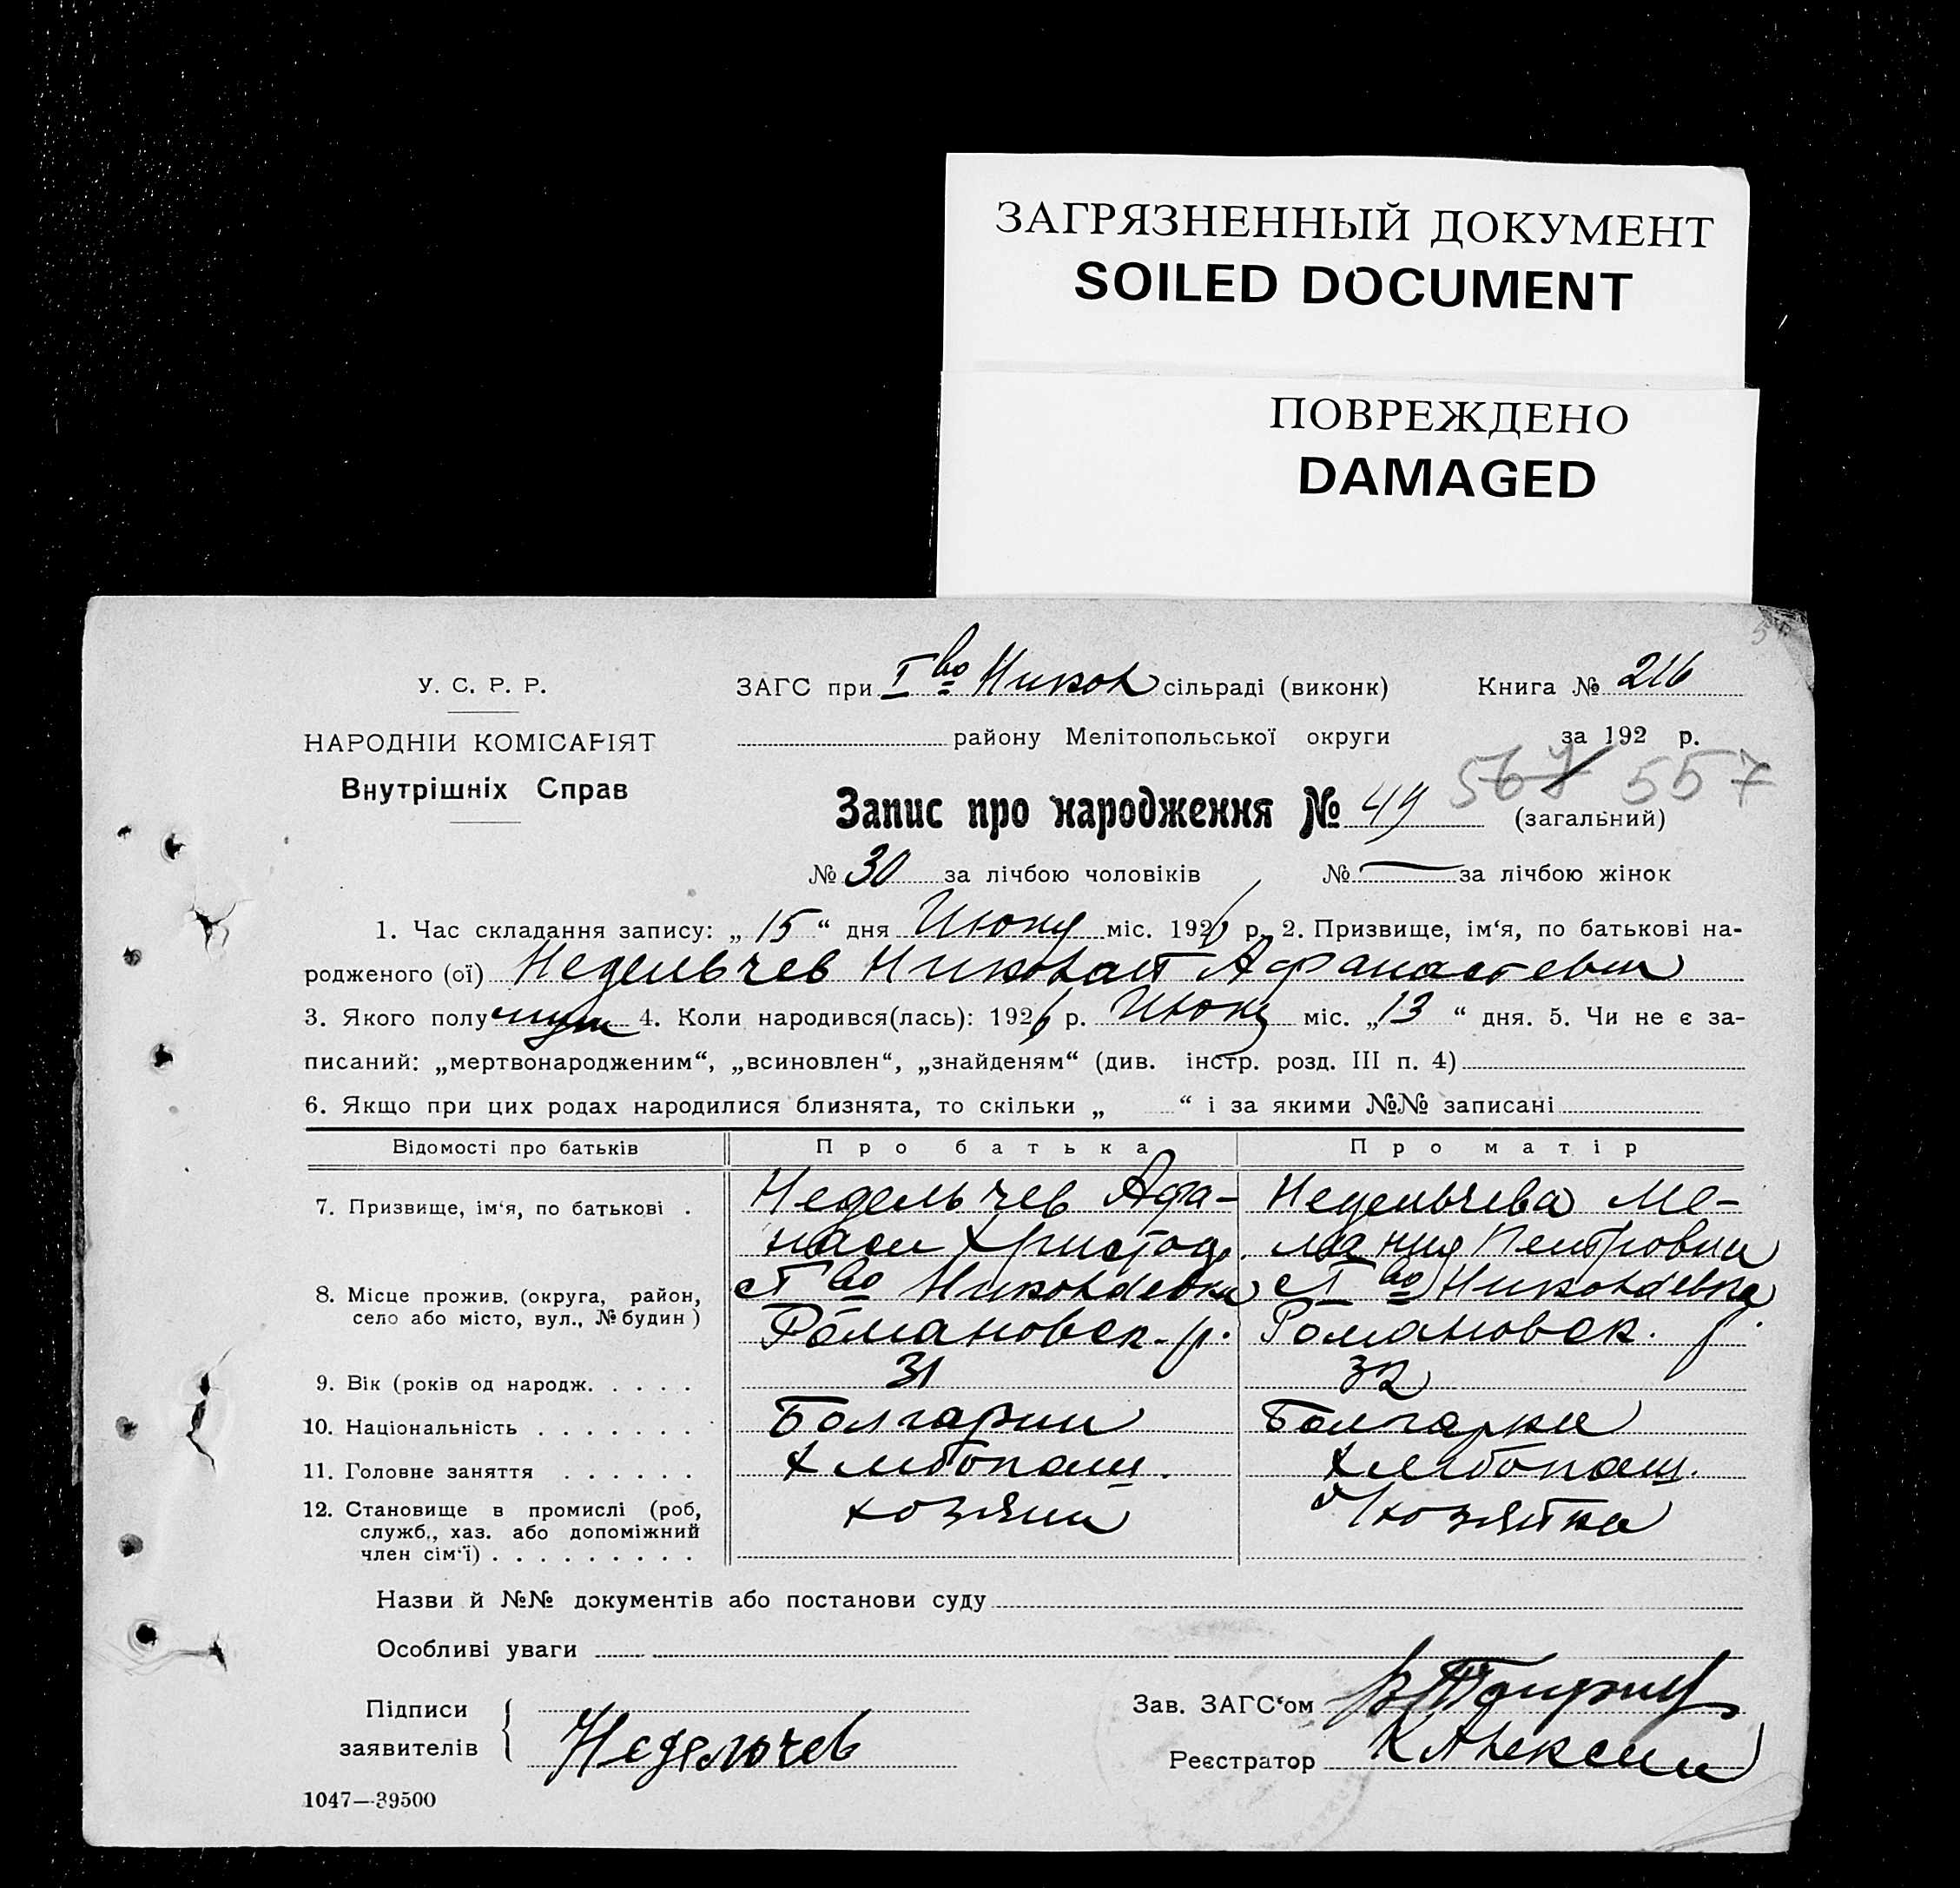 ЗАГРЯЗНЕННЫЙ ДОКУМЕНТ
SOILED DOCUMENT
ПОВРЕЖДЕНО
DAMAGED
У. С. Р. Р.
НАРОДНІЙ КОМІСАРІЯТ
Внутрішніх Справ
ЗАГС при I во Никол сільраді (виконк)
Книга № 216
району Мелітопольської округи
за 192 р.
567 557
Запис про народження № 49 (загальний)
№ 30 за лічбою чоловіків № — за лічбою жінок
1. Час складання запису: „ 15 “ дня Июня міс. 1926 р. 2. Призвище, ім‘я, по батькові на-
родженого (ої) Недельчев Николай Афанасевич
3. Якого полу муж 4. Коли народився(лась): 1926 р. Июня міс. „ 13 “ дня. 5. Чи не є за-
писаний: „мертвонародженим“, „всиновлен“, „знайденям“ (див. інстр. розд. III п. 4)
6. Якщо при цих родах народилися близнята, то скільки „ “ і за якими №№ записані
Відомості про батьків Про батька Про матір
7. Призвище, ім‘я, по батькові . Недельчев Афа- Недельчева Ме-
наси Христод. лания Петровна
8. Місце прожив. (округа, район, село або місто, вул., № будин) с I во Николаевка с I во Николаевка
Романовск. р. Романовск. р.
9. Вік (років од народж. . . . . 31 32
10. Національність . . . . . . . Болгарин Болгарка
11. Головне заняття . . . . . . Хлебопаш. Хлебопаш.
12. Становище в промислі (роб, служб., хаз. або допоміжний член сім‘ї) . . . . . . . . . хозяин хозяйка
Назви й №№ документів або постанови суду
Особливі уваги
Підписи заявителів Недельчев
Зав. ЗАГС‘ом
Реєстратор
1047—39500